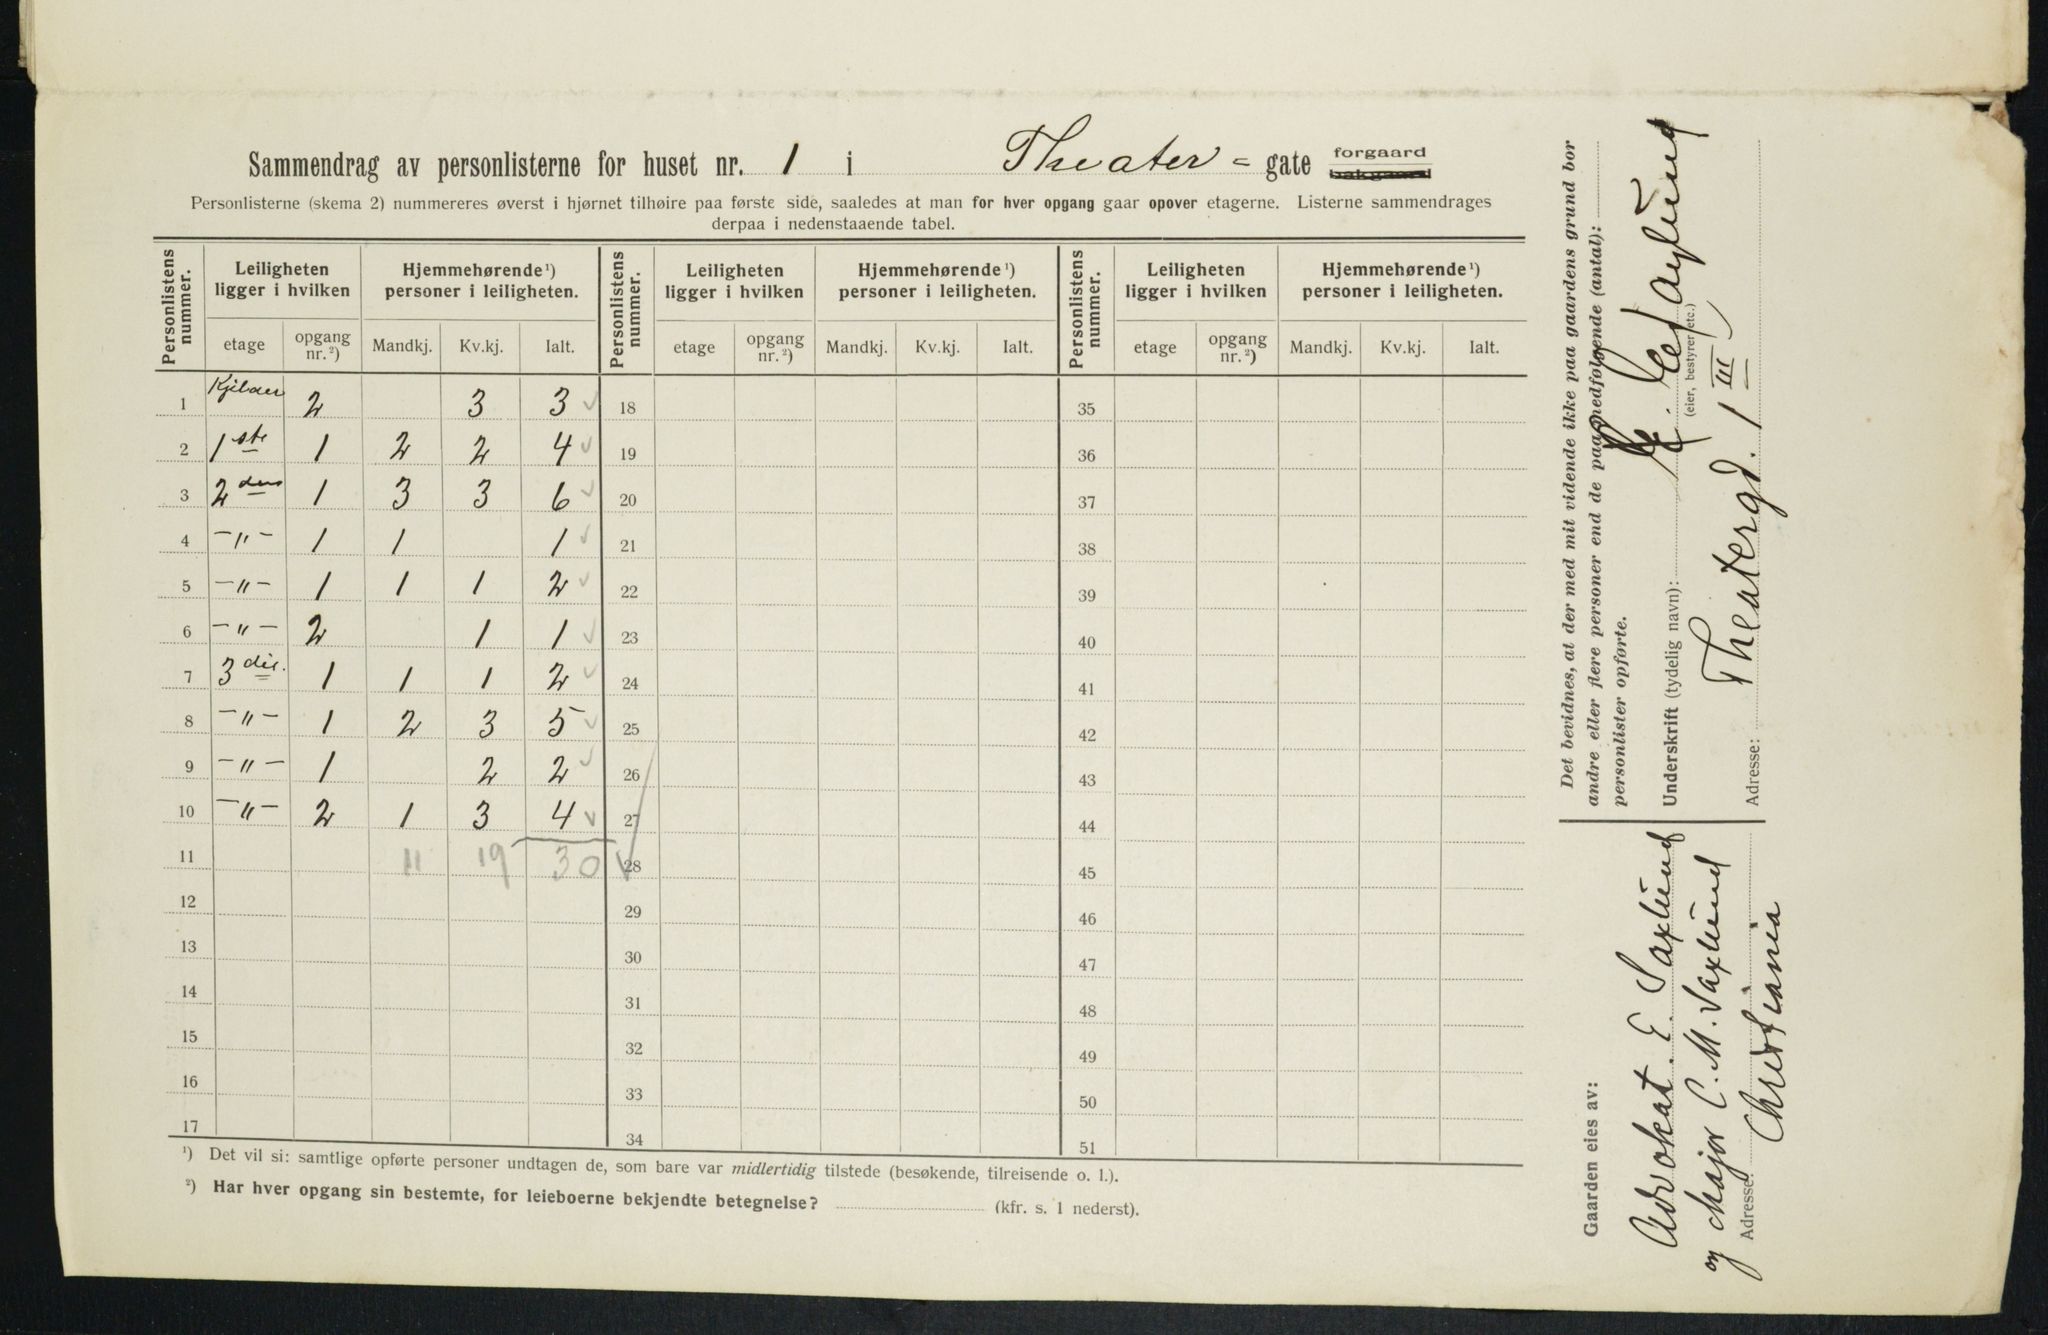 Sammendrag av personlisterne for huset nr. 1 i Theater- gate forgaard bakgaard
Personlisterne (skema 2) nummereres øverst i hjørnet tilhøire paa første side, saaledes at man for hver opgang gaar opover etagerne. Listerne sammendrages
derpaa i nedenstaaende tabel.
Personlistens nummer. Leiligheten ligger i hvilken Hjemmehørende ¹) personer i leiligheten. Personlistens nummer. Leiligheten ligger i hvilken Hjemmehørende ¹) personer i leiligheten. Personlistens nummer. Leiligheten ligger i hvilken Hjemmehørende ¹) personer i leiligheten.
etage opgang nr. ²) Mandkj. Kv.kj. Ialt. etage opgang nr. ²) Mandkj. Kv.kj. Ialt. etage opgang nr. ²) Mandkj. Kv.kj. Ialt.
1 Kjelder 2 3 3 18 35
2 1ste 1 2 2 4 19 36
3 2den 1 3 3 6 20 37
4 -"- 1 1 1 21 38
5 -"- 1 1 1 2 22 39
6 -"- 2 1 1 23 40
7 3die. 1 1 1 2 24 41
8 -"- 1 2 3 5 25 42
9 -"- 1 2 2 26 43
10 -"- 2 1 3 4 27 44
11 11 19 30 28 45
12 29 46
13 30 47
14 31 48
15 32 49
16 33 50
17 34 51
¹) Det vil si: samtlige opførte personer undtagen de, som bare var midlertidig tilstede (besøkende, tilreisende o. l.).
²) Har hver opgang sin bestemte, for leieboerne bekjendte betegnelse? (kfr. s. 1 nederst).
Det bevidnes, at der med mit vidende ikke paa gaardens grund bor
andre eller flere personer end de paa medfølgende (antal):
personlister opførte.
Underskrift (tydelig navn): E. Saxlund
(eier, bestyrer etc.)
Adresse: Theatergd. 1 III
Gaarden eies av:
Advokat E. Saxlund
og Major C. M. Saxlund
Adresse: Christiania